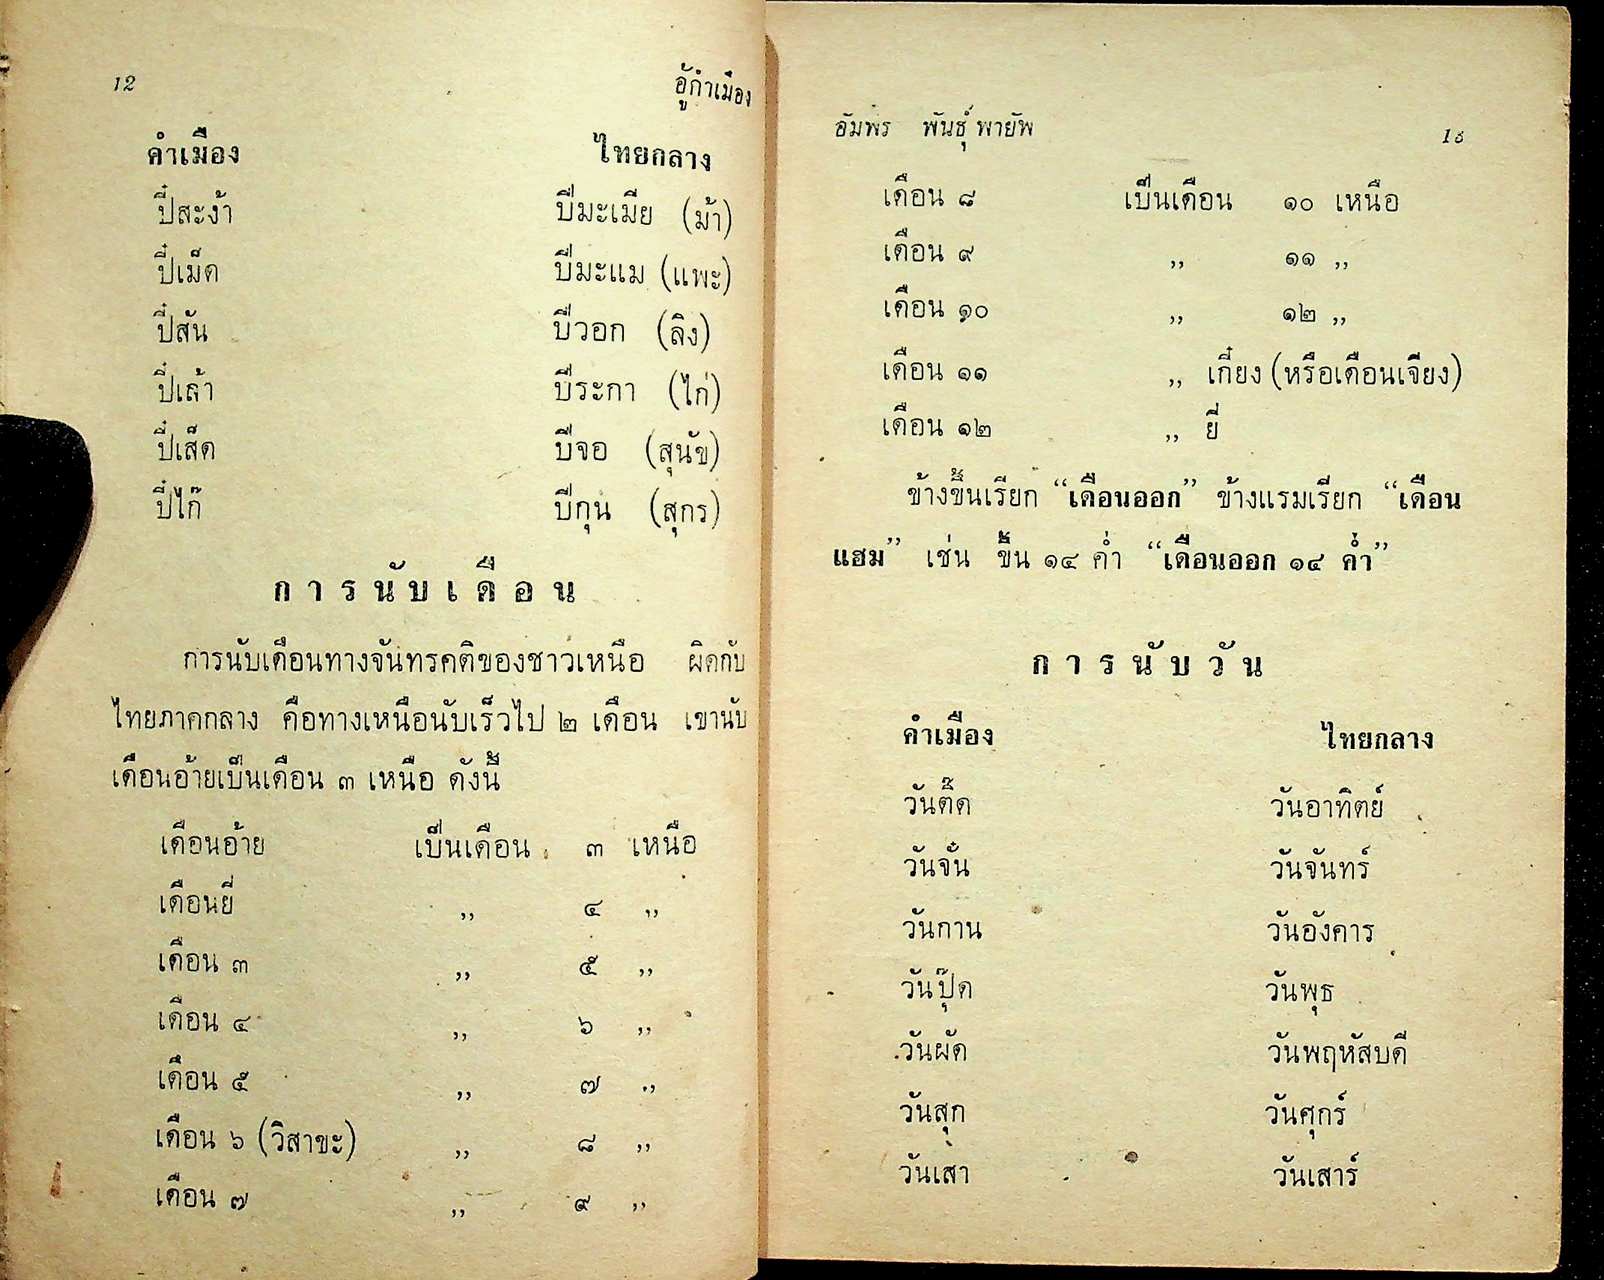 12 อู้กำเมือง
คำเมือง ไทยกลาง
ปี๋สะง้า ปีมะเมีย (ม้า)
ปี๋เม็ด ปีมะแม (แพะ)
ปี๋สัน ปีวอก (ลิง)
ปี๋เล้า ปีระกา (ไก่)
ปี๋เส็ด ปีจอ (สุนัข)
ปี๋ไก๊ ปีกุน (สุกร)
การนับเดือน
การนับเดือนทางจันทรคติของชาวเหนือ ผิดกับ
ไทยภาคกลาง คือทางเหนือนับเร็วไป ๒ เดือน เขานับ
เดือนอ้ายเป็นเดือน ๓ เหนือ ดังนี้
เดือนอ้าย เป็นเดือน ๓ เหนือ
เดือนยี่ ,, ๔ ,,
เดือน ๓ ,, ๕ ,,
เดือน ๔ ,, ๖ ,,
เดือน ๕ ,, ๗ ,,
เดือน ๖ (วิสาขะ) ,, ๘ ,,
เดือน ๗ ,, ๙ ,,
อัมพร พันธุ์ พายัพ 13
เดือน ๘ เป็นเดือน ๑๐ เหนือ
เดือน ๙ ,, ๑๑ ,,
เดือน ๑๐ ,, ๑๒ ,,
เดือน ๑๑ ,, เกี๋ยง (หรือเดือนเจียง)
เดือน ๑๒ ,, ยี่
ข้างขึ้นเรียก “เดือนออก” ข้างแรมเรียก “เดือน
แฮม” เช่น ขึ้น ๑๔ ค่ำ “เดือนออก ๑๔ ค่ำ”
การนับวัน
คำเมือง ไทยกลาง
วันติ๊ด วันอาทิตย์
วันจั๋น วันจันทร์
วันกาน วันอังคาร
วันปุ๊ด วันพุธ
วันผัด วันพฤหัสบดี
วันสุก วันศุกร์
วันเสา วันเสาร์